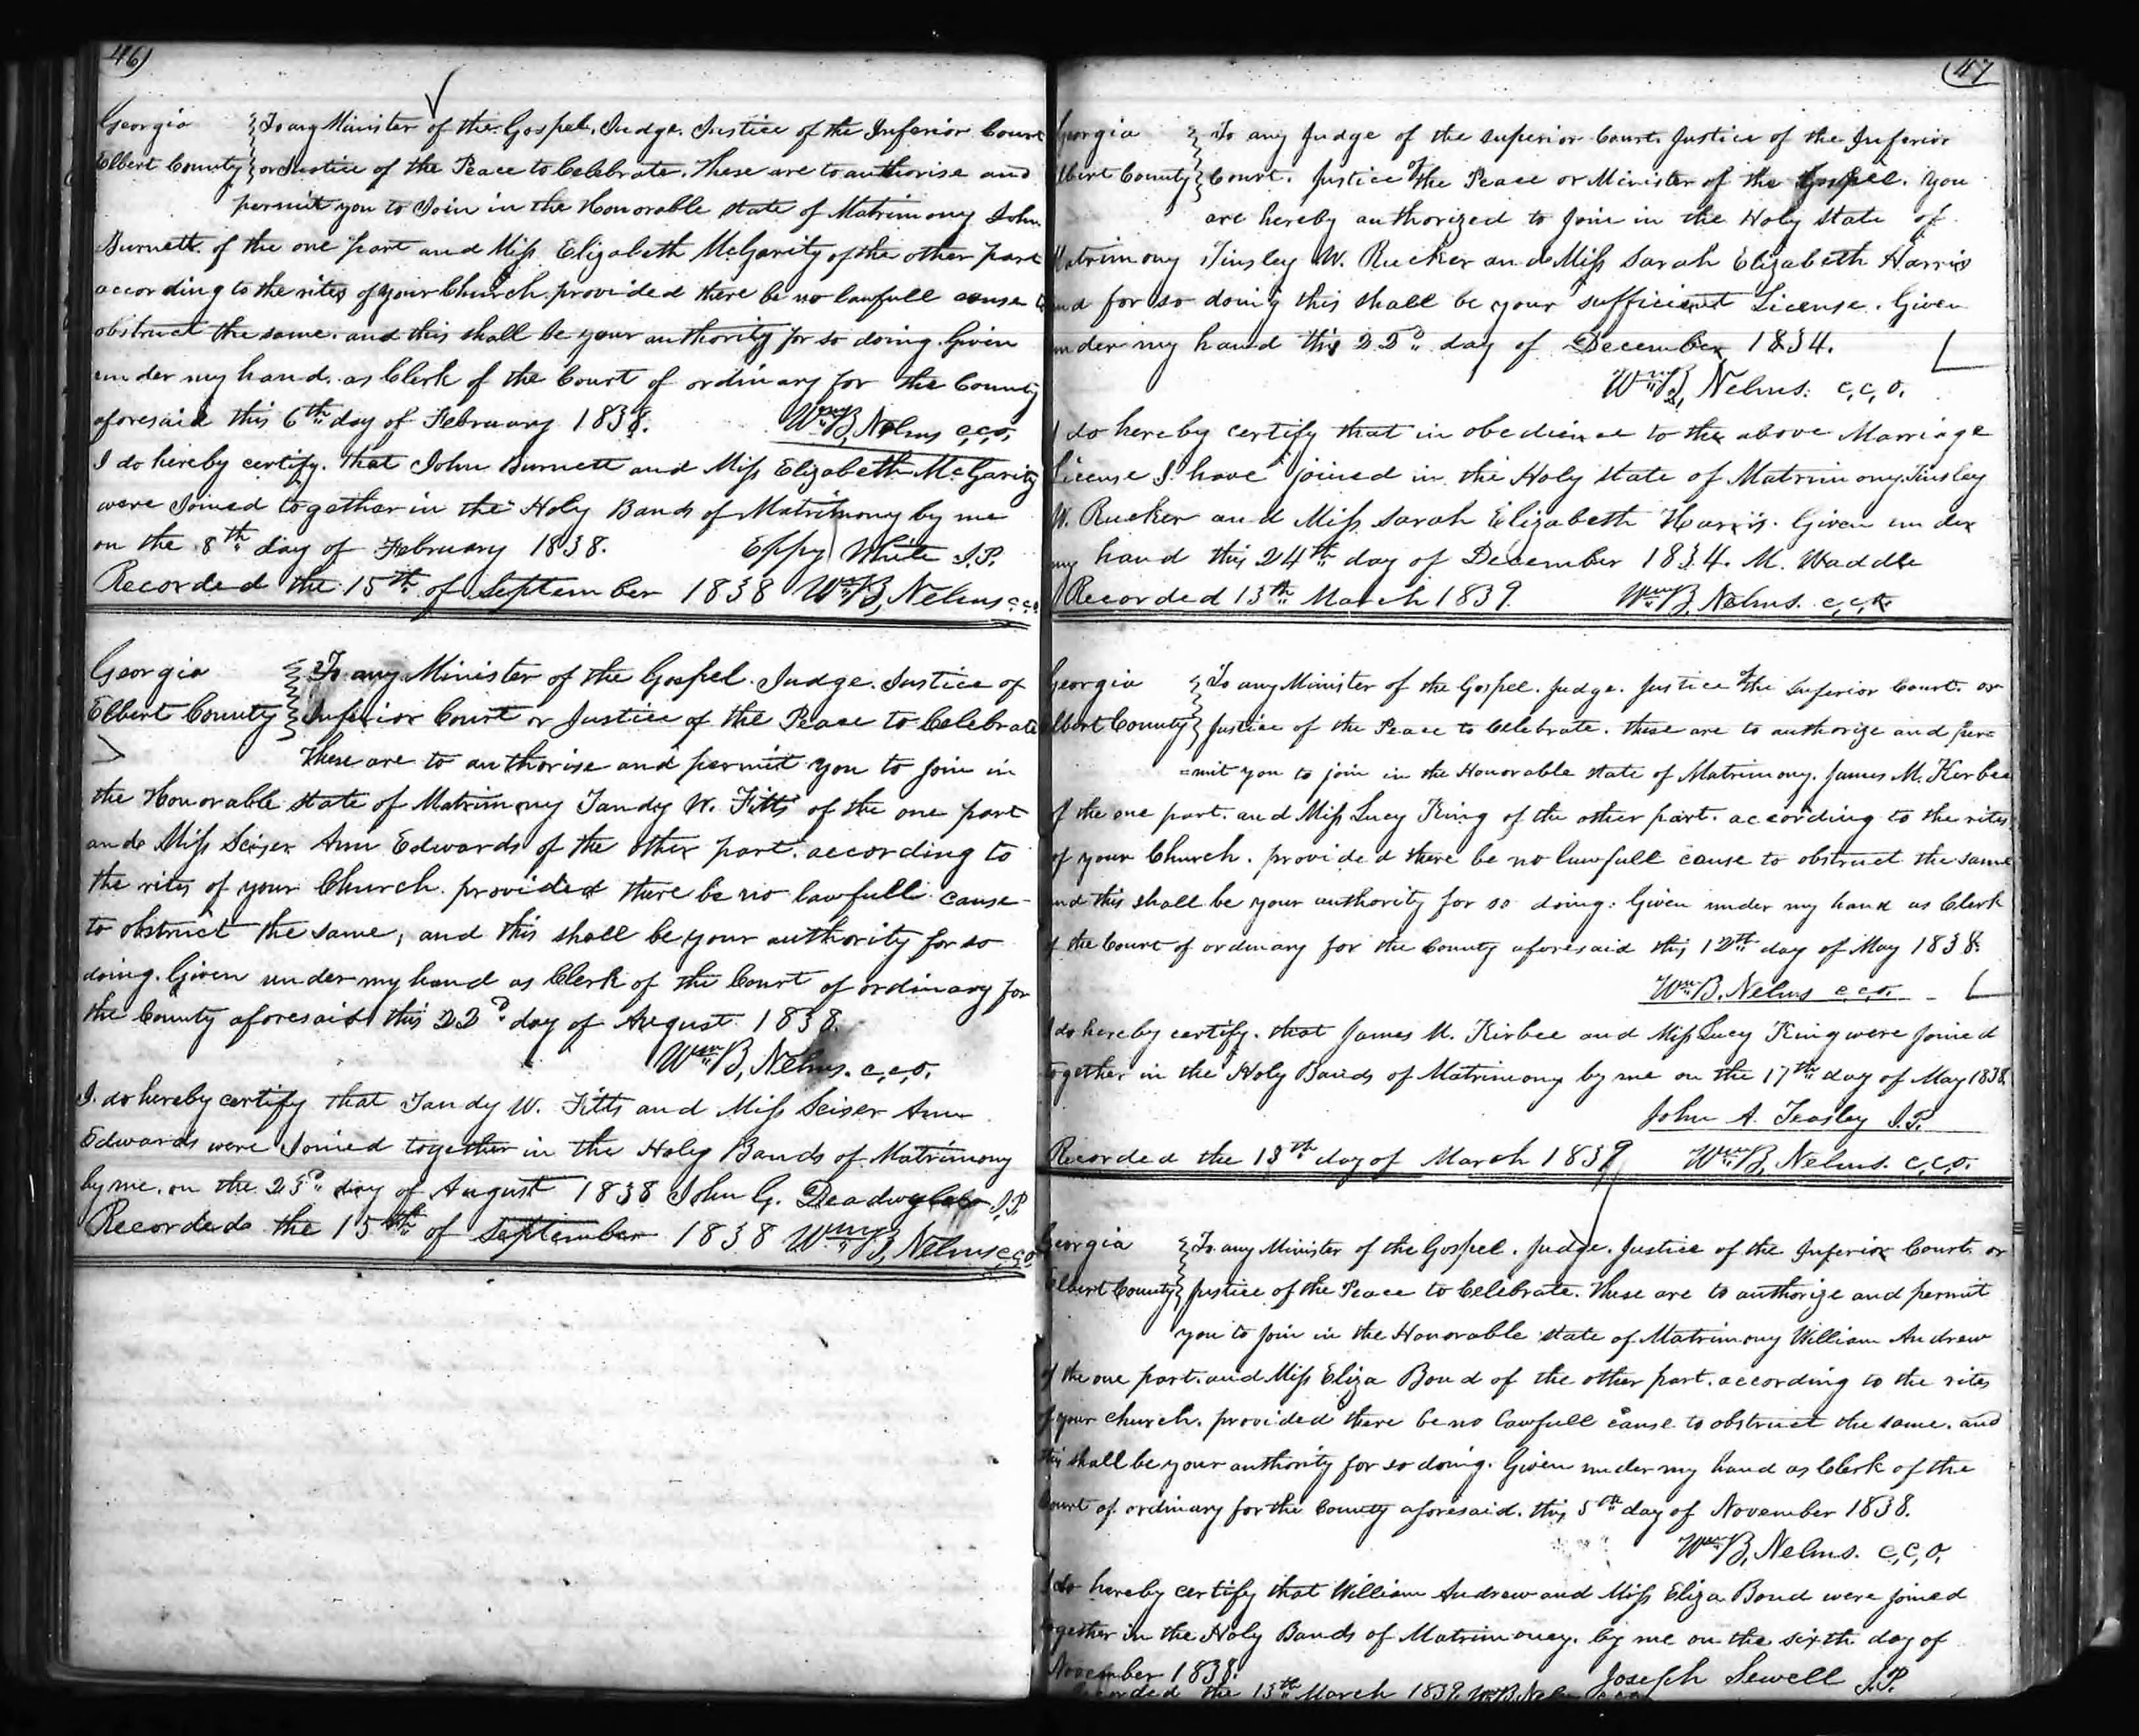 46)
Georgia } To any Minister of the Gospel. Judge. Justice of the Inferior Court
Elbert County } or Justice of the Peace to Celebrate. These are to authorise and
permit you to Join in the Honorable state of Matrimony John
Burnett. of the one part and Miss Elizabeth McGarity of the other part
according to the rites of your Church. provided there be no lawfull cause to
obstruct the same. and this shall be your authority for so doing. Given
under my hand. as Clerk of the Court of ordinary for the County
aforesaid this 6th day of February 1838. Wm B, Nelms c.c.o.
I do hereby certify. that John Burnett and Miss Elizabeth McGarity
were Joined together in the Holy Bands of Matrimony by me
on the 8th day of February 1838. Eppy White J.P.
Recorded the 15th of September 1838 Wm B, Nelms c.c.o.
Georgia } To any Minister of the Gospel. Judge. Justice of
Elbert County } Inferior Court or Justice of the Peace to Celebrate
These are to authorise and permit you to Join in
the Honorable state of Matrimony Tandy W. Fitts of the one part
and Miss Seiser Ann Edwards of the other part. according to
the rites of your Church. provided there be no lawfull cause
to obstruct the same, and this shall be your authority for so
doing. Given under my hand as Clerk of the Court of ordinary for
the County aforesaid this 22d day of August 1838.
Wm B, Nelms. c.c.o.
I do hereby certify that Tandy W. Fitts and Miss Seiser Ann
Edwards were Joined together in the Holy Bands of Matrimony
by me. on the 23d day of August 1838 John G. Deadwyler J.P.
Recorded the 15th of September 1838 Wm B, Nelms c.c.o.
47
Georgia } To any Judge of the superior Court. Justice of the Inferior
Elbert County } Court. Justice of the Peace or Minister of the Gospel. You
are hereby authorized to Join in the Holy State of
Matrimony Tinsley W. Rucker and Miss Sarah Elizabeth Harris
and for so doing this shall be your sufficient License. Given
under my hand this 22d day of December 1834.
Wm B, Nelms. c.c.o.
I do hereby certify that in obedience to the above Marriage
License I have joined in the Holy State of Matrimony Tinsley
W. Rucker and Miss Sarah Elizabeth Harris. Given under
my hand this 24th day of December 1834. M. Waddle
Recorded 13th March 1839. Wm B, Nelms. c.c.o.
Georgia } To any Minister of the Gospel. Judge. Justice of the Inferior Court. or
Elbert County } Justice of the Peace to Celebrate. these are to authorize and per=
=mit you to join in the Honorable state of Matrimony. James M. Kerbee
of the one part. and Miss Lucy King of the other part. according to the rites
of your Church. provided there be no lawfull cause to obstruct the same
and this shall be your authority for so doing: Given under my hand as Clerk
of the Court of ordinary for the County aforesaid this 12th day of May 1838.
Wm B. Nelms c.c.o.
I do hereby certify. that James M. Kirbee and Miss Lucy King were Joined
together in the Holy Bands of Matrimony by me on the 17th day of May 1838.
John A. Teasley J.P.
Recorded the 13th day of March 1839 Wm B, Nelms. c.c.o.
Georgia } To any Minister of the Gospel. Judge. Justice of the Inferior Court. or
Elbert County } Justice of the Peace to Celebrate. These are to authorize and permit
you to Join in the Honorable state of Matrimony William Andrew
of the one part. and Miss Eliza Bond of the other part. according to the rites
of your church. provided there be no lawfull cause to obstruct the same. and
this shall be your authority for so doing. Given under my hand as Clerk of the
Court of ordinary for the County aforesaid. this 5th day of November 1838.
Wm B, Nelms. c.c.o.
I do hereby certify that William Andrew and Miss Eliza Bond were joined
together in the Holy Bands of Matrimoney. by me on the sixth day of
November 1838. Joseph Sewell J.P.
Recorded the 13th March 1839 Wm B, Nelms c.c.o.